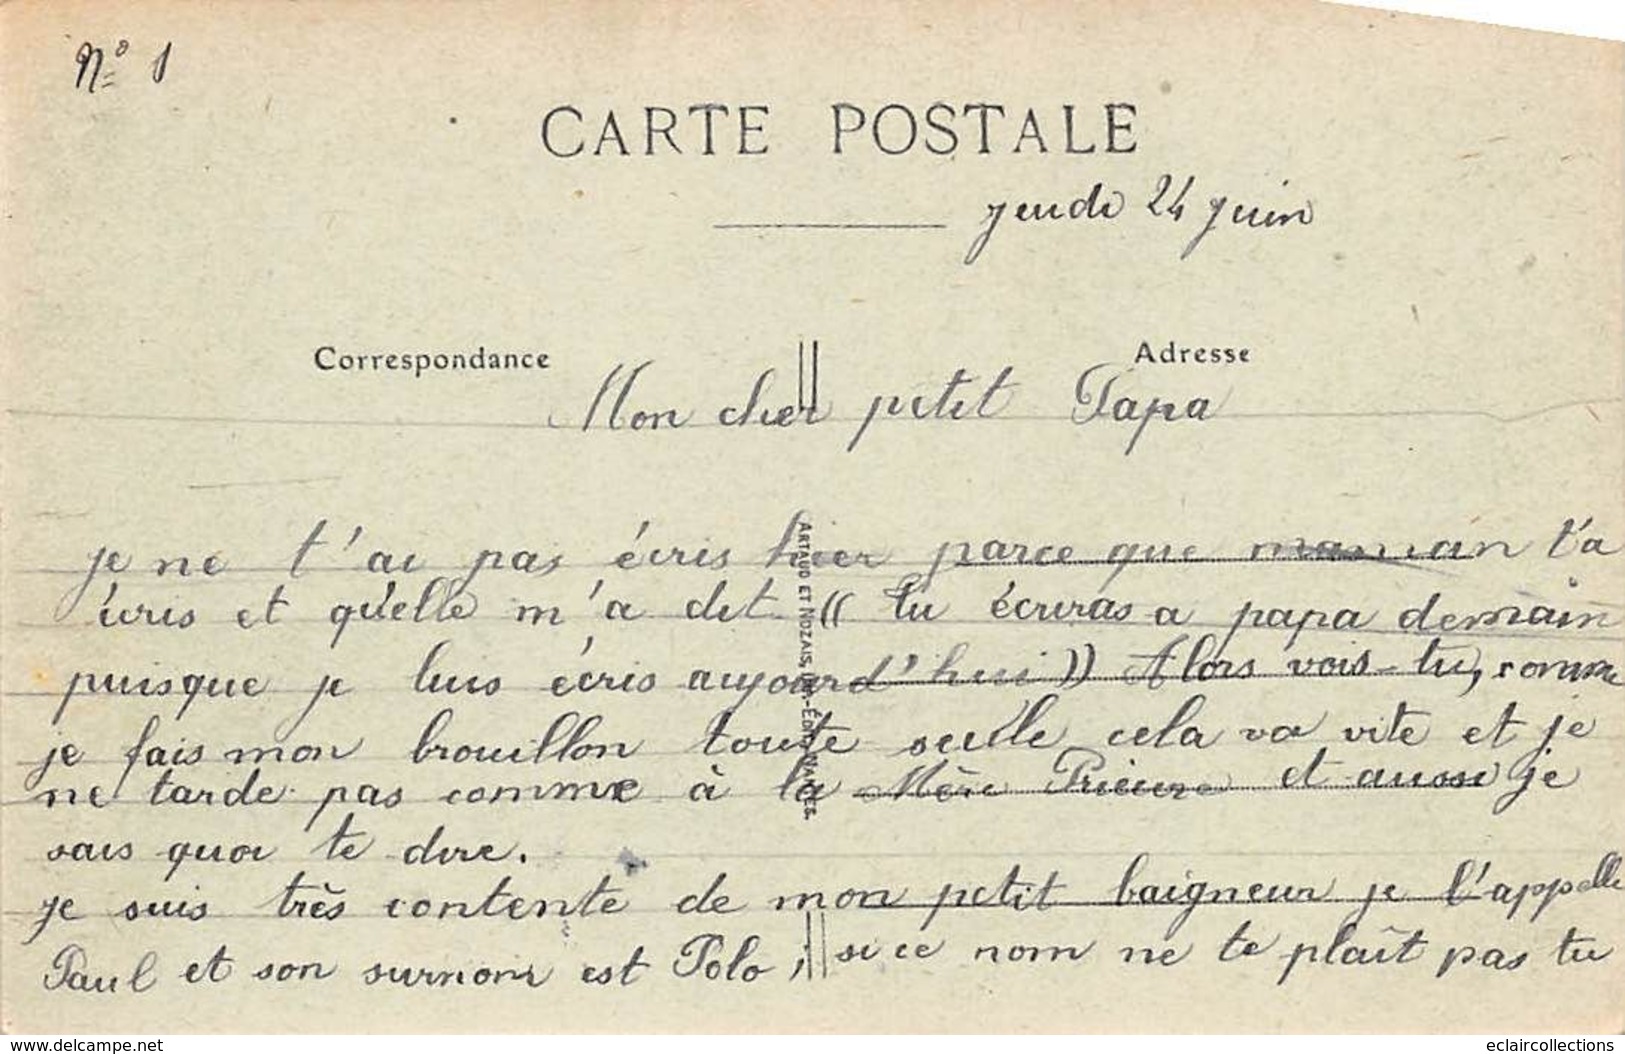 Nº 1
CARTE POSTALE
jeudi 24 juin
Correspondance
Adresse
Mon cher petit Papa
je ne t'ai pas écris hier parce que maman t'a
écris et qu'elle m'a dit (( tu écriras a papa demain
puisque je luis écris aujourd'hui )) Alors vois-tu, comme
je fais mon brouillon toute seule cela va vite et je
ne tarde pas comme à la Mère Prieure et aussi je
sais quoi te dire.
je suis très contente de mon petit baigneur je l'appelle
Paul et son surnom est Polo ; si ce nom ne te plaît pas tu
ARTAUD ET NOZAIS, NANTES.
www.delcampe.net
eclaircollections